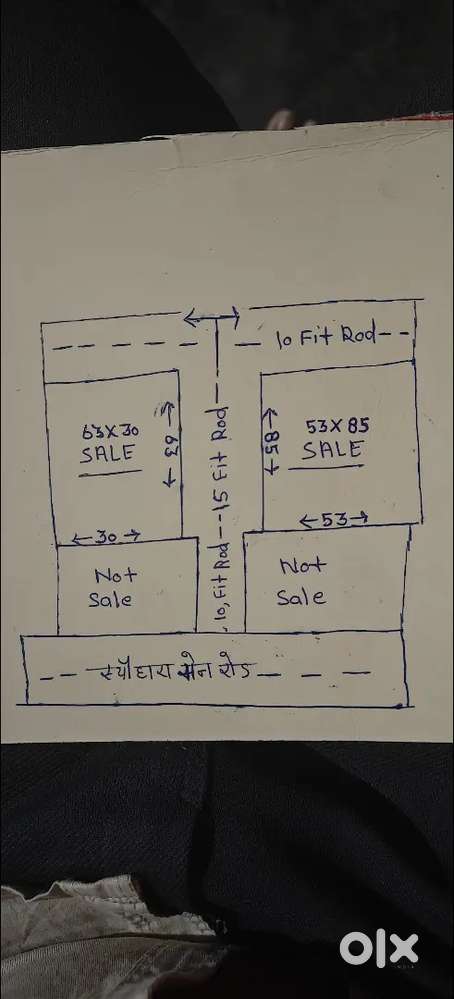 10 Fit Rod
63X30
SALE
63
15 Fit Rod
85
53X85
SALE
30
53
Not
Sale
10, Fit Rod
Not
Sale
स्यौहारा मेन रोड
olx
INDIA